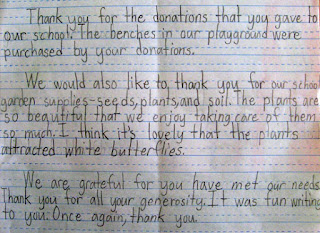 Thank you for the donations that you gave to
our school. The benches in our playground were
purchased by your donations.
We would also like to, thank you for our school
garden supplies-seeds, plants, and soil. The plants are
so beautiful that we enjoy taking care of them
so much. I think it's lovely that the plants
attracted white butterflies.
We are grateful for you have met our needs.
Thank you for all your generosity. It was fun writing
to you. Once again, thank you.